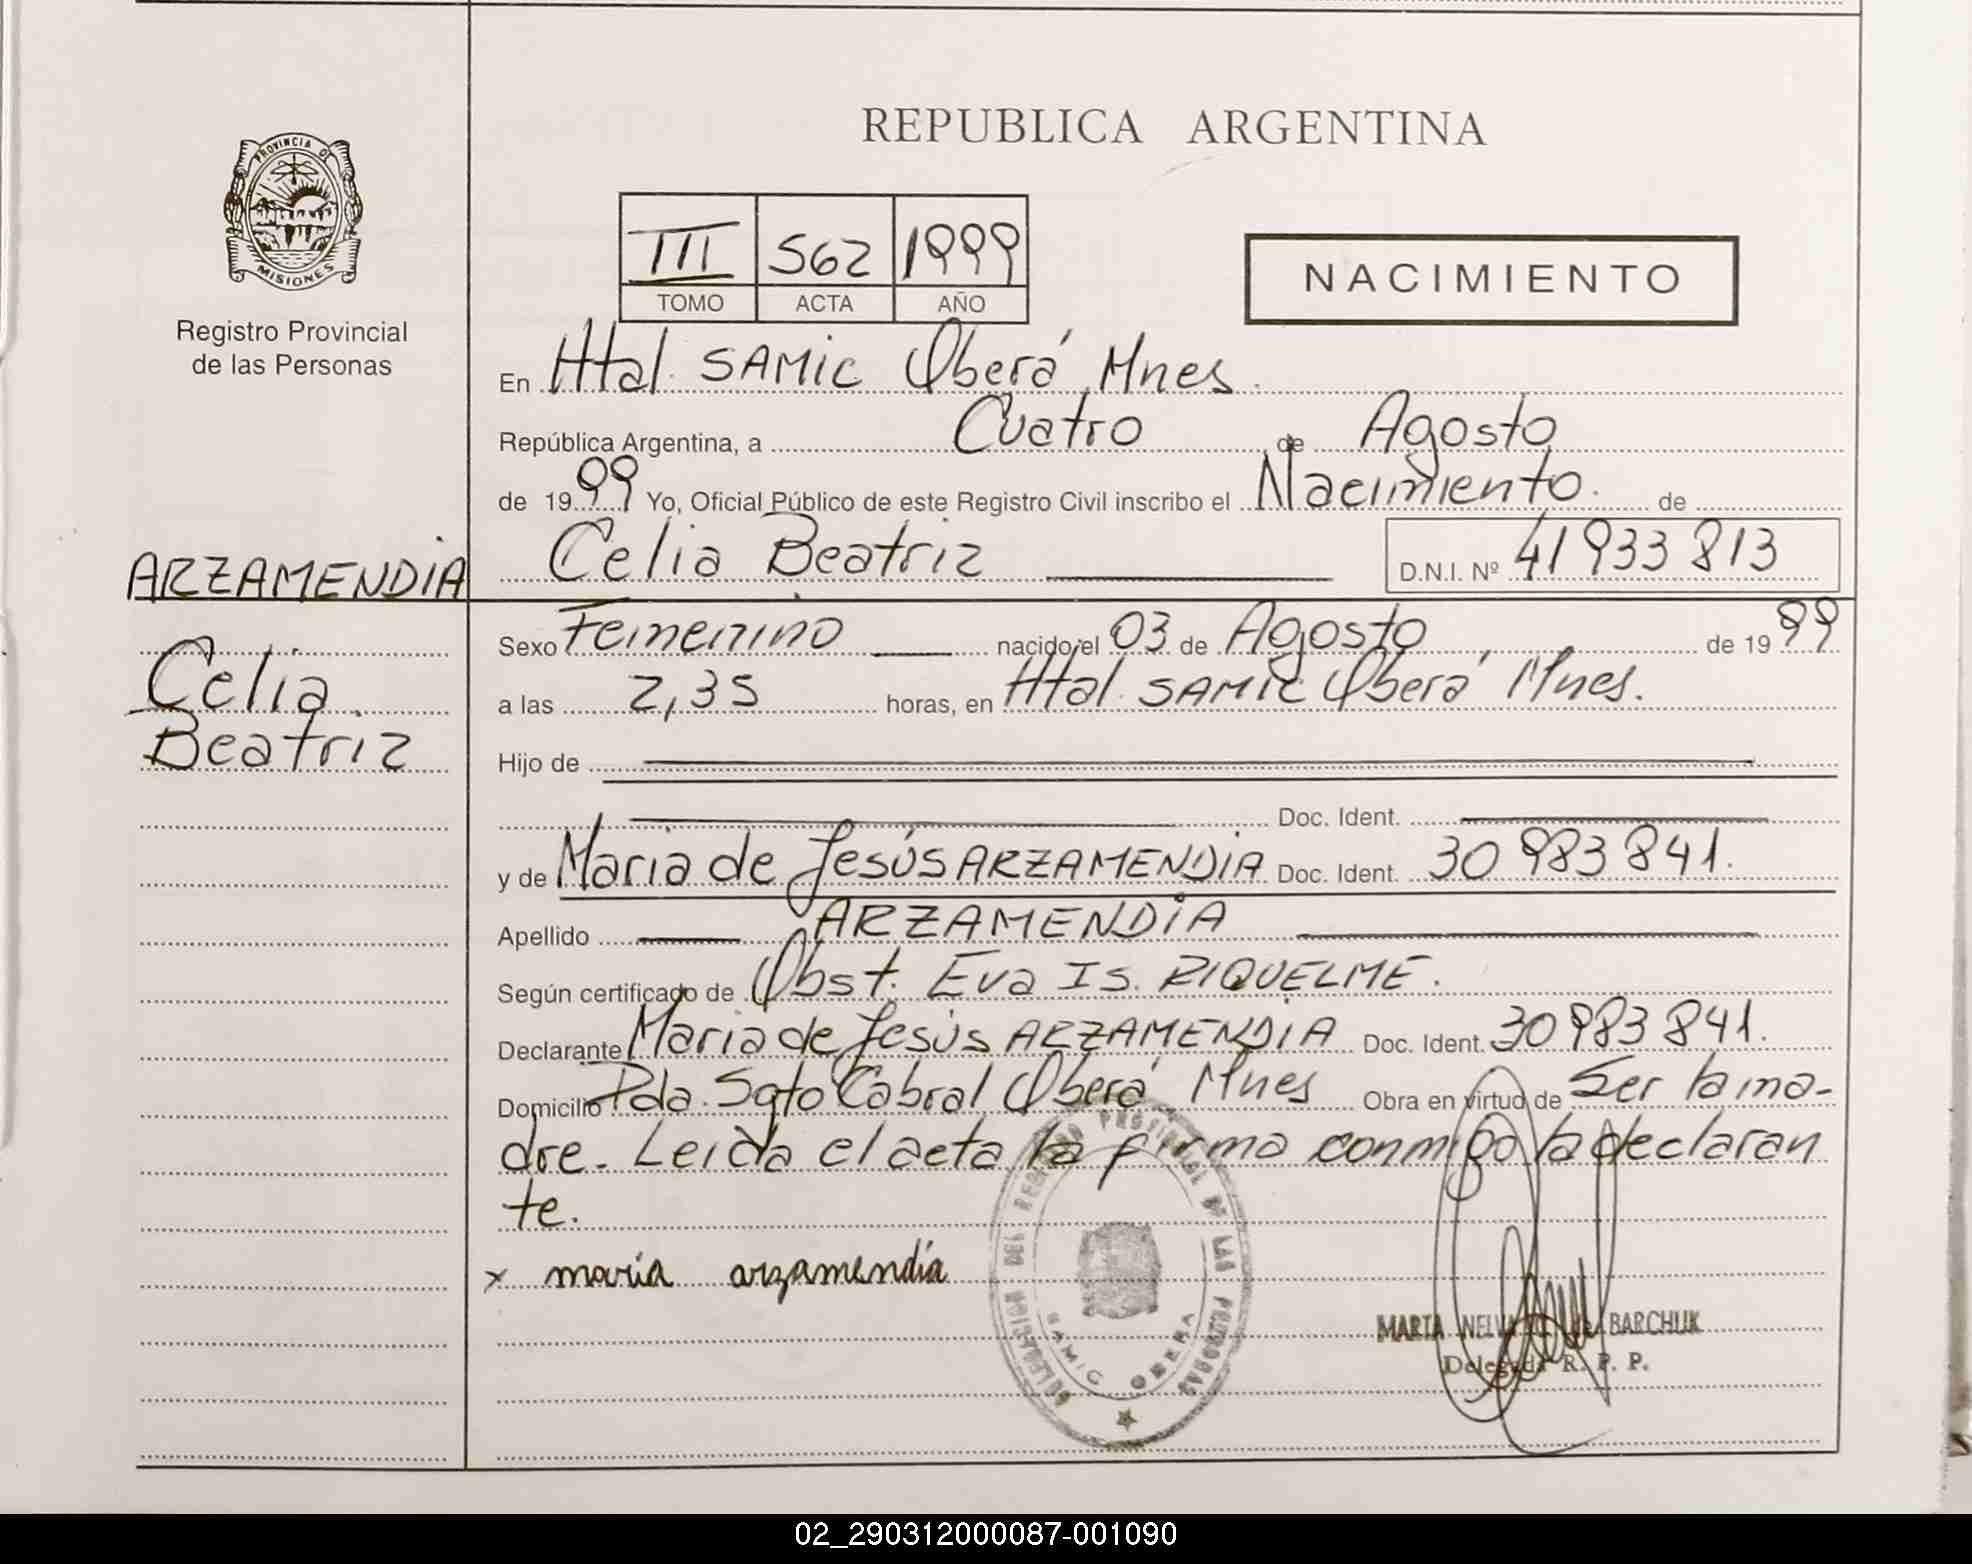 REPUBLICA ARGENTINA
PROVINCIA DE
MISIONES
Registro Provincial
de las Personas
III 562 1999
TOMO ACTA AÑO
NACIMIENTO
En Htal. SAMIC Oberá Mnes.
República Argentina, a Cuatro de Agosto
de 1999 Yo, Oficial Público de este Registro Civil inscribo el Nacimiento. de
ARZAMENDIA
Celia Beatriz D.N.I. Nº 41 933 813
Celia
Beatriz
Sexo Femenino nacido el 03 de Agosto de 1999
a las 2,35 horas, en Htal. SAMIC Oberá Mnes.
Hijo de
Doc. Ident.
y de Maria de Jesús ARZAMENDIA Doc. Ident. 30 983 841.
Apellido ARZAMENDIA
Según certificado de Obst. Eva Is. RIQUELME.
Declarante Maria de Jesús ARZAMENDIA Doc. Ident. 30 983 841.
Domicilio Pda. Sgto Cabral Oberá Mnes Obra en virtud de Ser la ma-
dre. Leida el acta la firma conmigo la declaran
te.
x maría arzamendía
DELEGACION DEL REGISTRO PROVINCIAL DE LAS PERSONAS
SAMIC OBERA
MARTA NELVA de BARCHUK
Delegada R. P. P.
02_290312000087-001090